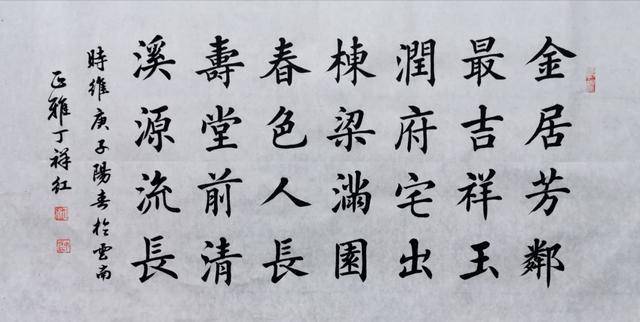 金居芳鄰
最吉祥玉
潤府宅出
棟梁滿園
春色人長
壽堂前清
溪源流長
時維庚子陽春於雲南
正雅丁祥红